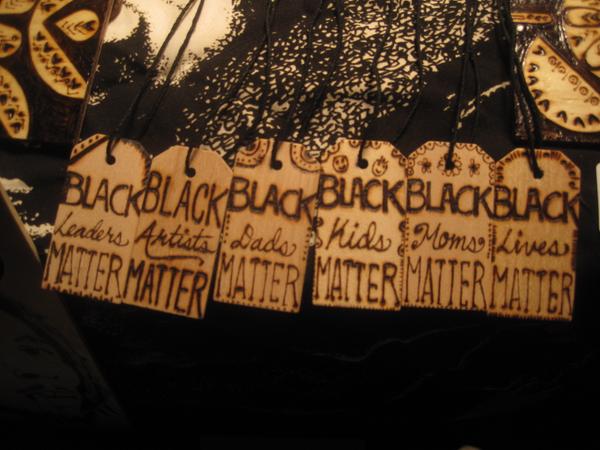 BLACK
Leaders
MATTER
BLACK
Artists
MATTER
BLACK
Dads
MATTER
BLACK
Kids
MATTER
BLACK
Moms
MATTER
BLACK
Lives
MATTER